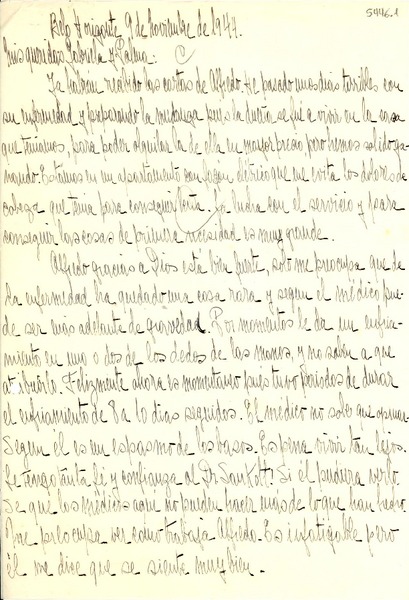 5446.1
Belo Horizonte 9 de noviembre de 1944.
Mis queridas Gabriela y Palma:
Ya habrán recibido las cartas de Alfredo. He pasado unos días terribles con
su enfermedad y preparando la mudanza pues la dueña se fué a vivir en la casa
que teníamos, para poder alquilar la de ella en mayor precio, pero hemos salido ga-
nando. Estamos en un apartamento con fogón eléctrico que me evita los dolores de
cabeza que tenía para conseguir leña. La lucha con el servicio y para
conseguir las cosas de primera necesidad es muy grande.
Alfredo gracias a Dios está bien fuerte, solo me preocupa que de
la enfermedad ha quedado una cosa rara y según el médico pue-
de ser más adelante de gravedad. Por momentos le da un enfria-
miento en uno o dos de los dedos de las manos, y no saben a que
atribuirlo. Felizmente ahora es momentaneo pues tuvo períodos de durar
el enfriamiento de 8 a 10 días seguidos. El médico no sabe que opinar.
Según el es un espasmo de los vasos. Es pena vivir tan lejos.
Le tengo tanta fe y confianza al Dr. Si él pudiera verlo.
Se que los médicos aquí no pueden hacer más de lo que han hecho.
Me preocupa ver como trabaja Alfredo. Es infatigable pero
él me dice que se siente muy bien.